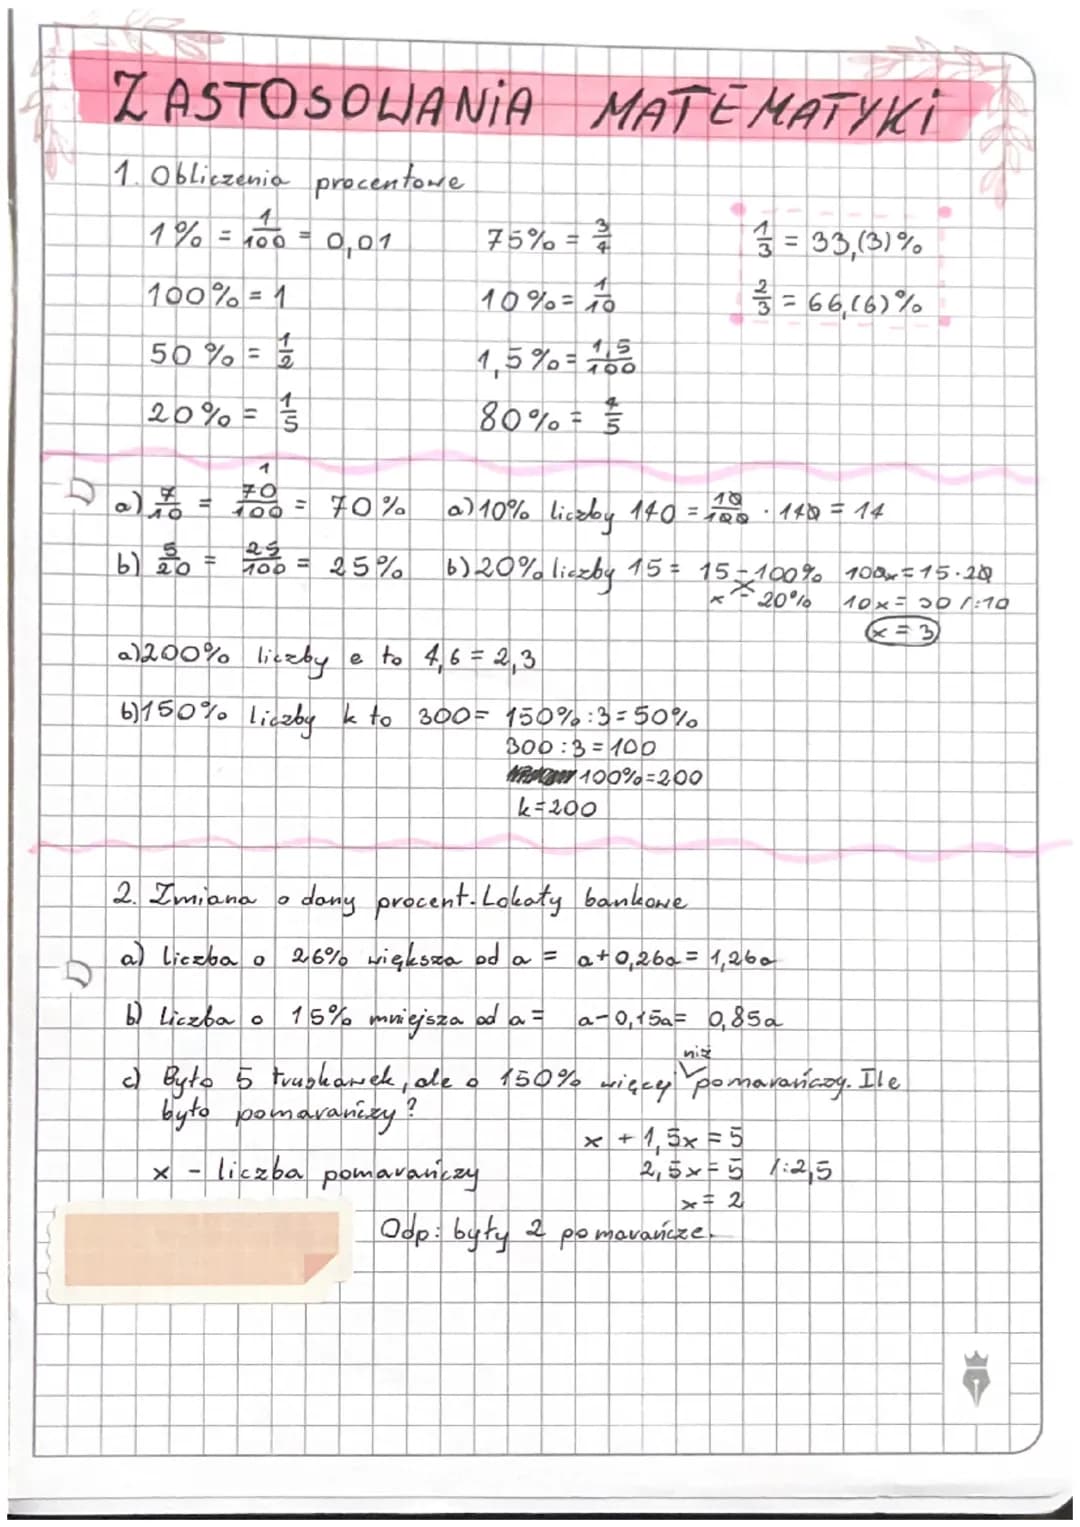 ZASTOSOWANIA MATEMATYKI
1. Obliczenia procentowe
1% = 1/100 = 0,01 75% = 3/4 1/3 = 33,(3)%
100% = 1 10% = 1/10 2/3 = 66,(6)%
50% = 1/2 1,5% = 1,5/100
20% = 1/5 80% = 4/5
a) 7/10 = 70/100 = 70% a) 10% liczby 140 = 10/100 · 140 = 14
b) 5/20 = 25/100 = 25% b) 20% liczby 15 = 15 - 100% 100x = 15·20
x - 20% 10x = 30 /:10
x = 3
a) 200% liczby e to 4,6 = 2,3
b) 150% liczby k to 300 = 150% : 3 = 50%
300 : 3 = 100
100% = 200
k = 200
2. Zmiana o dany procent. Lokaty bankowe
a) liczba o 26% większa od a = a + 0,26a = 1,26a
b) liczba o 15% mniejsza od a = a - 0,15a = 0,85a
c) Było 5 truskawek, ale o 150% więcej niż pomarańczy. Ile
było pomarańczy?
x + 1,5x = 5
x - liczba pomarańczy 2,5x = 5 /:2,5
x = 2
Odp: były 2 pomarańcze.